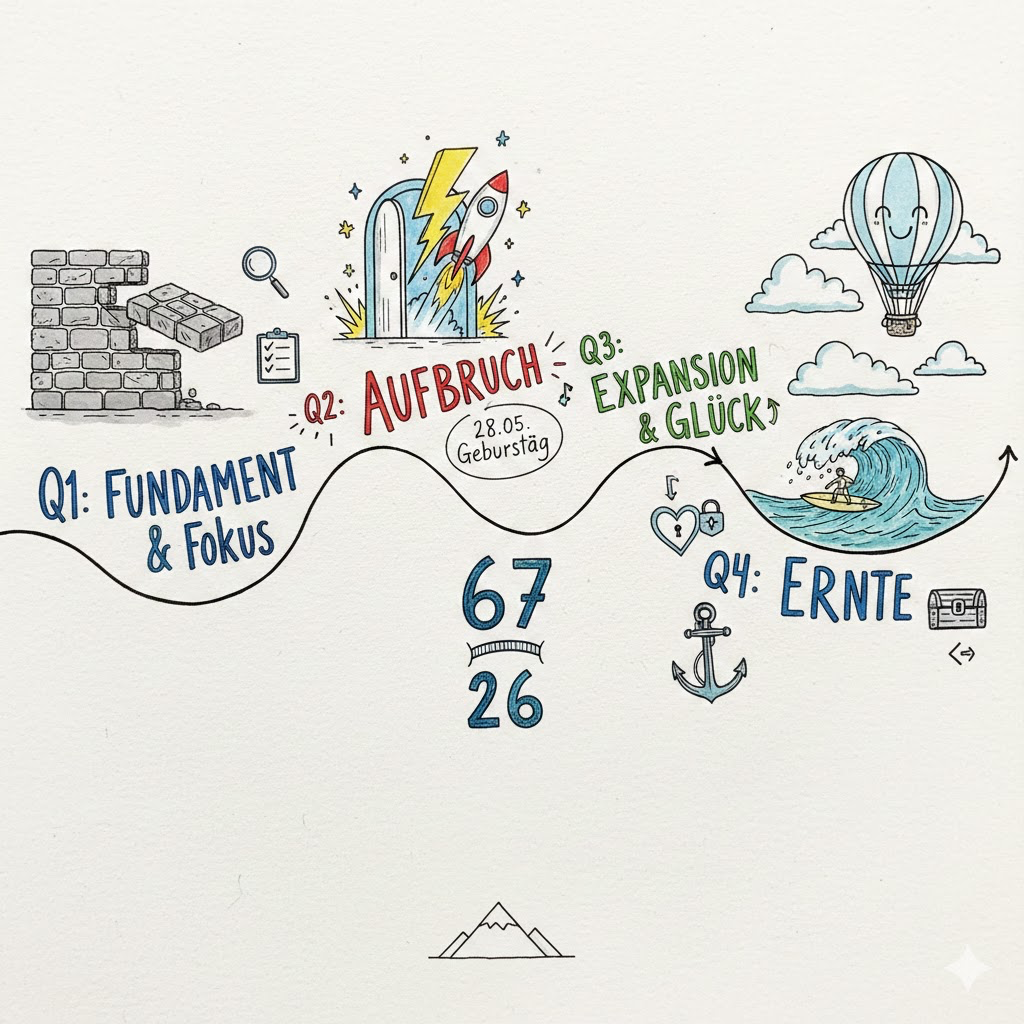 Q1: FUNDAMENT
& FOKUS
Q2: AUFBRUCH
28.05.
Geburstäg
Q3:
EXPANSION
& GLÜCK
67
26
Q4: ERNTE